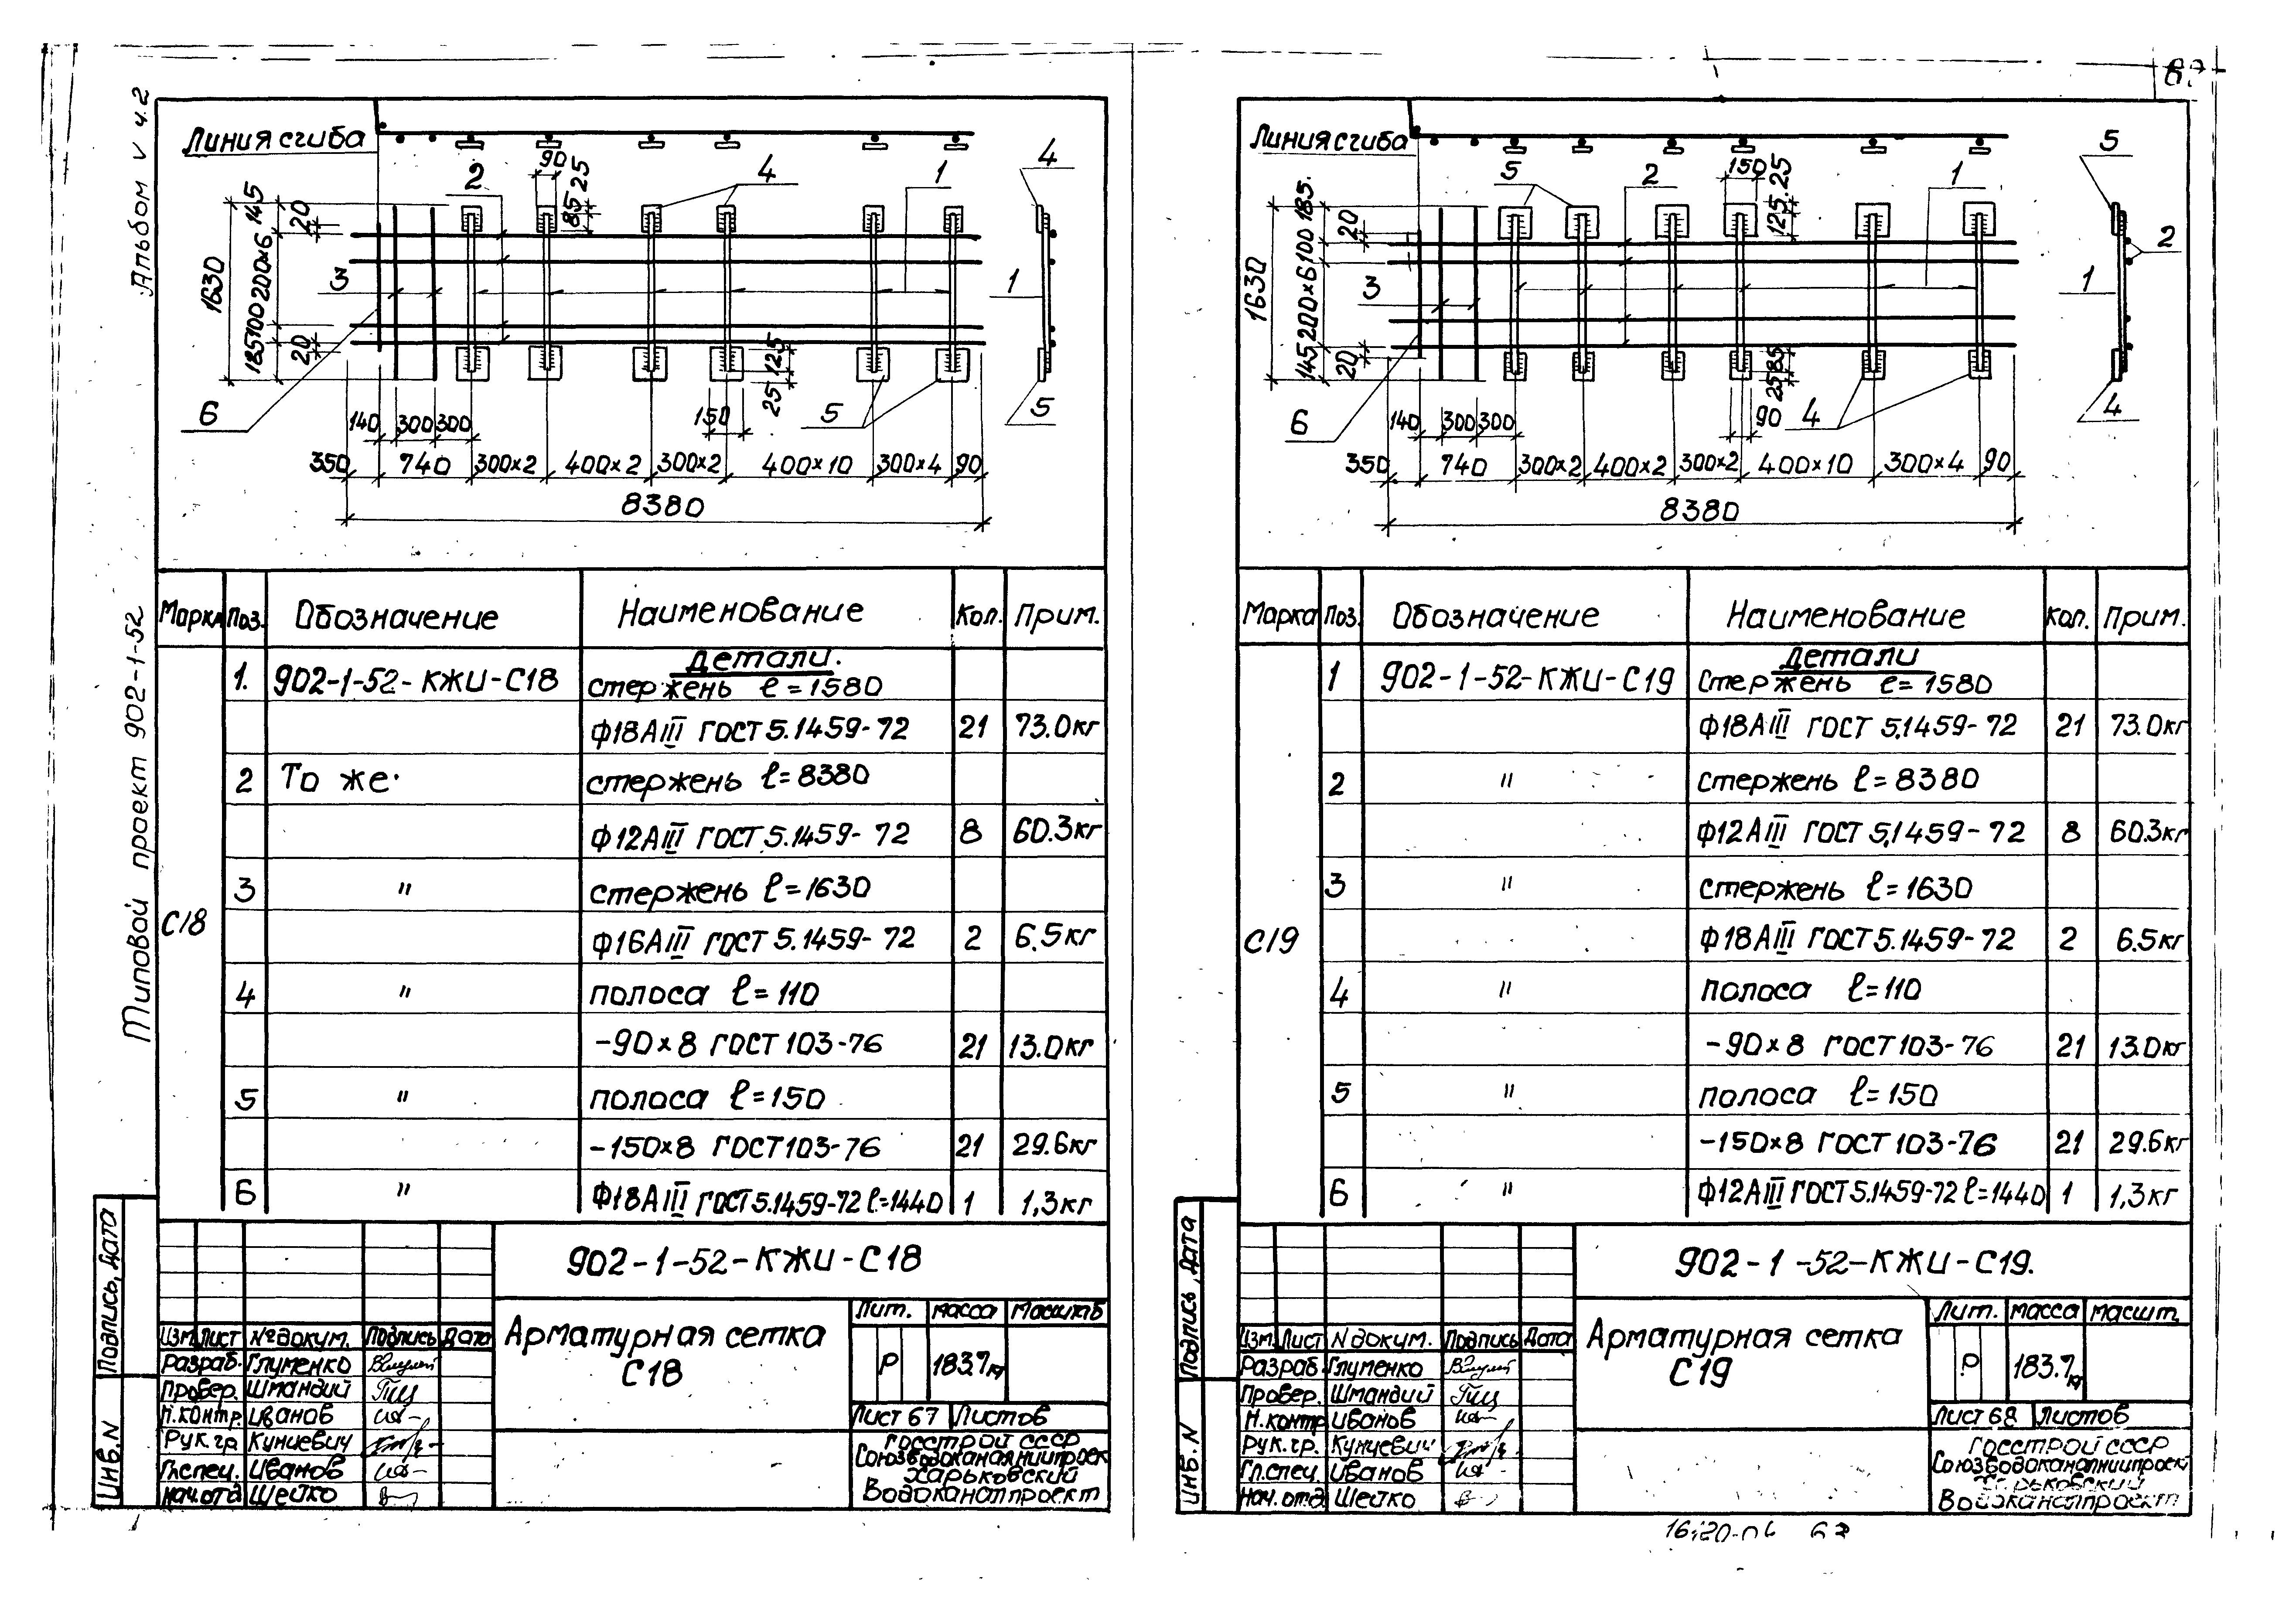 Альбом V ч.2
Типовой проект 902-1-52
Линия сгиба
2
90
25
85
4
1
4
145
20
200×6
1630
3
1
100
185
20
125
25
6
140
300
300
150
5
5
350
740
300×2
400×2
300×2
400×10
300×4
90
8380
Марка Поз. Обозначение Наименование Кол. Прим.
детали.
1. 902-1-52-КЖИ-С18 стержень ℓ=1580
Ф18АIII ГОСТ 5.1459-72 21 73.0кг
2 То же. стержень ℓ=8380
Ф12АIII ГОСТ 5.1459-72 8 60.3кг
3 " стержень ℓ=1630
С18
Ф16АIII ГОСТ 5.1459-72 2 6.5кг
4 " полоса ℓ=110
-90×8 ГОСТ 103-76 21 13.0кг
5 " полоса ℓ=150
-150×8 ГОСТ 103-76 21 29.6кг
6 " Ф18АIII ГОСТ 5.1459-72 ℓ=1440 1 1,3кг
902-1-52-КЖИ-С18
Арматурная сетка
С18
Лит. масса Масштб
Р 183.7кг
Лист 67 Листов
Госстрой СССР
Союзводоканалниипроек
Харьковский
Водоканалпроект
Изм. Лист № докум. Подпись Дата
Разраб. Глуменко
Провер. Шмандий
Н.контр. Иванов
Рук.гр. Кунцевич
Гл.спец. Иванов
Нач.отд Шейко
Подпись, дата
Инв.N
Линия сгиба
5
2
150
25
125
1
5
185
20
100
200×6
1630
3
2
1
145
20
85
25
6
140
300
300
90
4
4
350
740
300×2
400×2
300×2
400×10
300×4
90
8380
Марка Поз. Обозначение Наименование Кол. Прим.
детали
1 902-1-52-КЖИ-С19 стержень ℓ=1580
Ф18АIII ГОСТ 5.1459-72 21 73.0кг
2 " стержень ℓ=8380
Ф12АIII ГОСТ 5.1459-72 8 60.3кг
3 " стержень ℓ=1630
С19
Ф18АIII ГОСТ 5.1459-72 2 6.5кг
4 " полоса ℓ=110
-90×8 ГОСТ 103-76 21 13.0кг
5 " полоса ℓ=150
-150×8 ГОСТ 103-76 21 29.6кг
6 " Ф12АIII ГОСТ 5.1459-72 ℓ=1440 1 1,3кг
902-1-52-КЖИ-С19.
Арматурная сетка
С19
Лит. масса масшт.
Р 183.7кг
Лист 68 Листов
Госстрой СССР
Союзводоканалниипроект
Харьковский
Водоканалпроект
Изм. Лист N докум. Подпись Дата
Разраб. Глуменко
Провер. Шмандий
Н.контр Иванов
Рук.гр. Кунцевич
Гл.спец. Иванов
Нач.отд Шейко
Подпись, дата
Инв.N